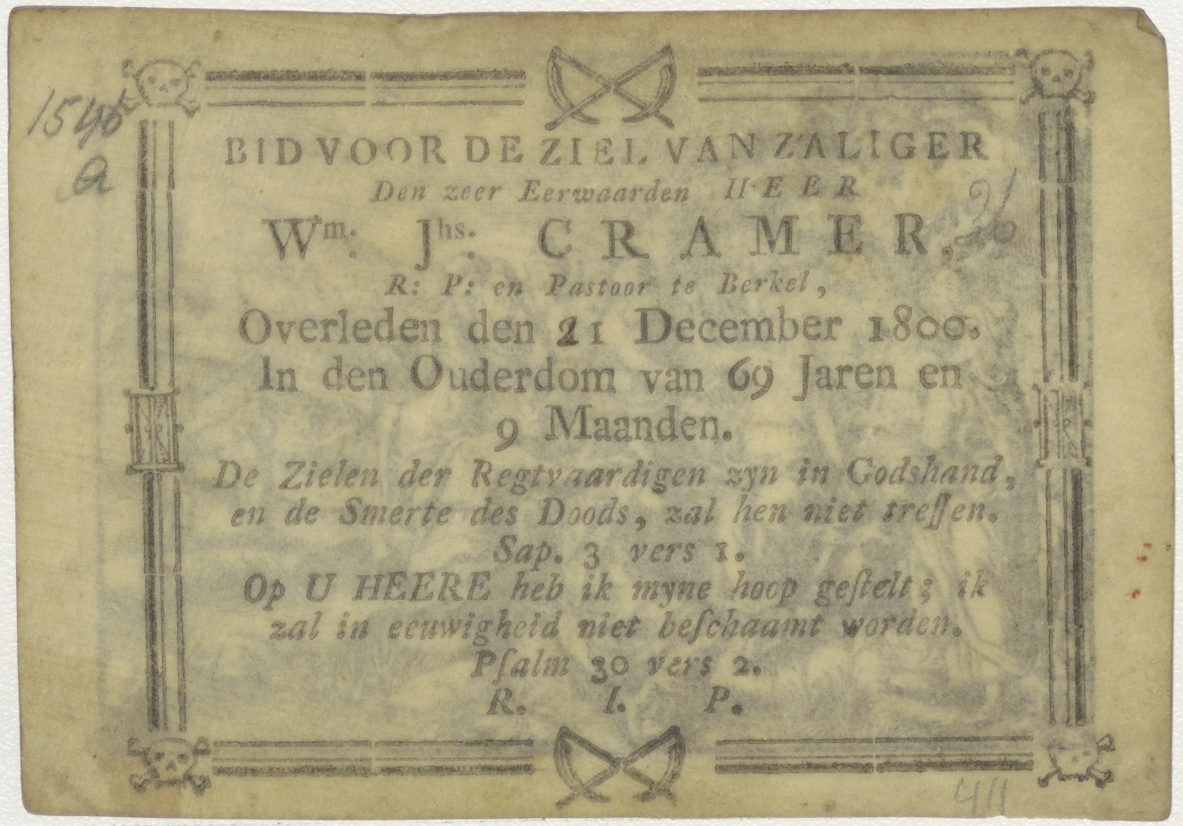 1545
a
BID VOOR DE ZIEL VAN ZALIGER
Den zeer Eerwaarden HEER
Wm: Jhs: CRAMER,
R: P: en Pastoor te Berkel,
Overleden den 21 December 1800.
In den Ouderdom van 69 Jaren en
9 Maanden.
De Zielen der Regtvaardigen zyn in Godshand,
en de Smerte des Doods, zal hen niet treffen.
Sap. 3 vers 1.
Op U HEERE heb ik myne hoop geſtelt; ik
zal in eeuwigheid niet beſchaamt worden.
Pſalm 30 vers 2.
R. I. P.
411